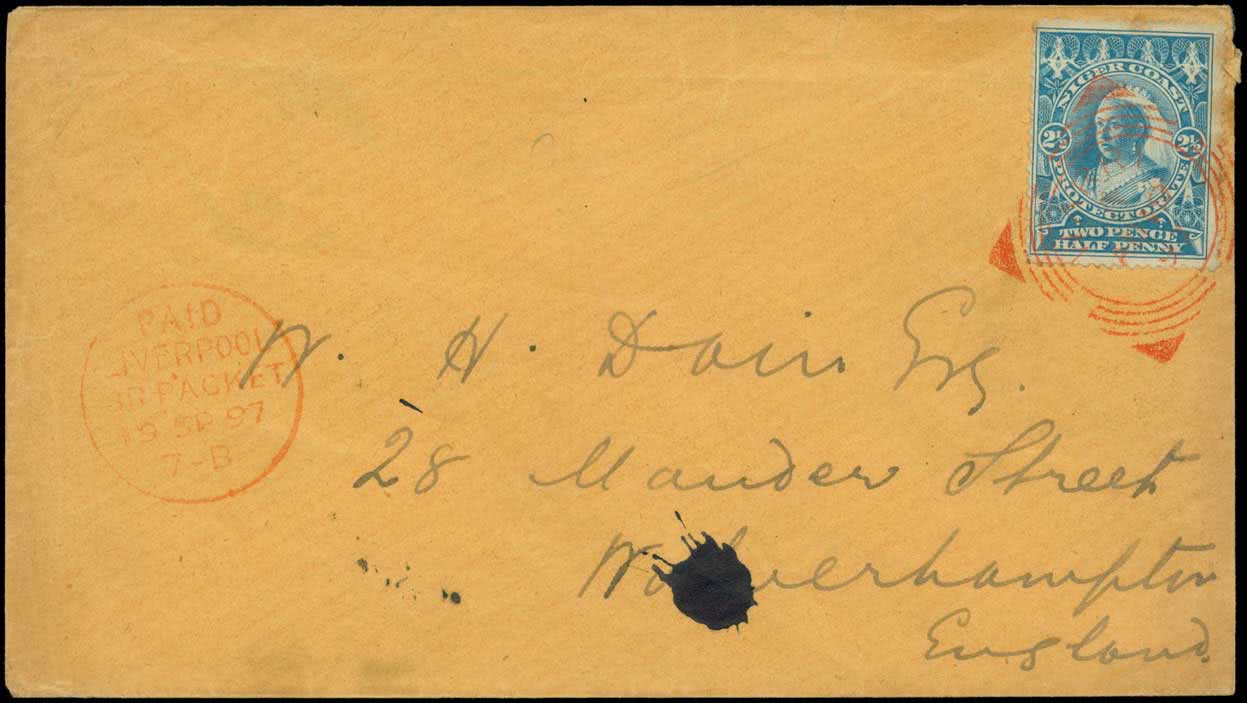 NIGER COAST
2½ 2½
PROTECTORATE
TWO PENCE
HALF PENNY
PAID
LIVERPOOL
BR PACKET
19 SP 97
7-B
W. H. Dain Esq.
28 Mander Street
Wolverhampton
England.